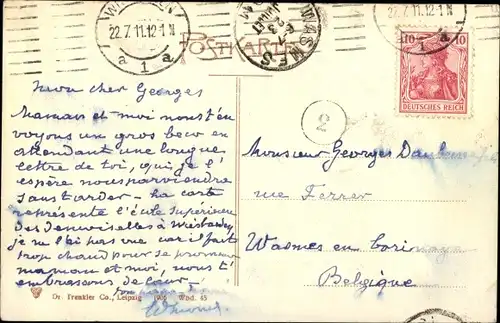 22.7.11.12-1N
a 1 a
POSTKARTE
WASMES
22.7.11.12-1N
a 1 a
10 10
DEUTSCHES REICH
2
Mon cher Georges
Maman et moi nous t'en
voyons un gros beco en
attendant une longue
lettre de toi, qui, je l'
espère nous parviendra
sans tarder - la carte
représente l'école supérieure
des demoiselles à Wiesbaden
je ne l'ai pas vue car il fait
trop chaud pour se promener
maman et moi, nous t'
embrassons de cœur.
Monsieur Georges
rue Ferrer
Wasmes en Borinage
Belgique
Dr. Trenkler Co., Leipzig 1906 Wbd. 45